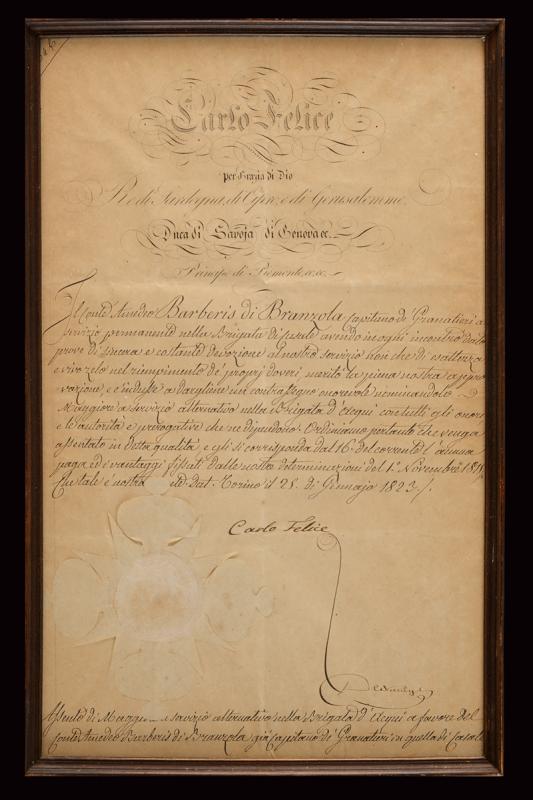 Carlo Felice
per Grazia di Dio
Re di Sardegna, di Cipro, e di Gerusalemme,
Duca di Savoja di Genova ec.
Principe di Piemonte, ec. ec.
Il Conte Amedeo Barberis di Branzola Capitano di Granatieri a
servizio permanente nella Brigata di Casale avendo in ogni incontro dato
prove di sincera e costante devozione al nostro servizio non che di esattezza
e vivo zelo nel riempimento de' proprj doveri meritò la piena nostra appro
vazione, e c'indusse a dargliene un contrassegno onorevole nominandolo
Maggiore a servizio alternativo nella Brigata d'Acqui con tutti gli onori
le autorità e prerogative che ne dipendono. Ordiniamo pertanto che venga
assentato in detta qualità e gli si corrisponda dal 16 del corrente l'annua
paga ed i vantaggi fissati dalle nostre determinazioni del 1.º Novembre
Che tale è nostra Dat. Torino il 28. di Gennajo 1823./.
Carlo Felice
Assento di Maggiore a servizio alternativo nella Brigata d'Acqui a favore del
Conte Amedeo Barberis di Branzola già Capitano di Granatieri in quella di Casale